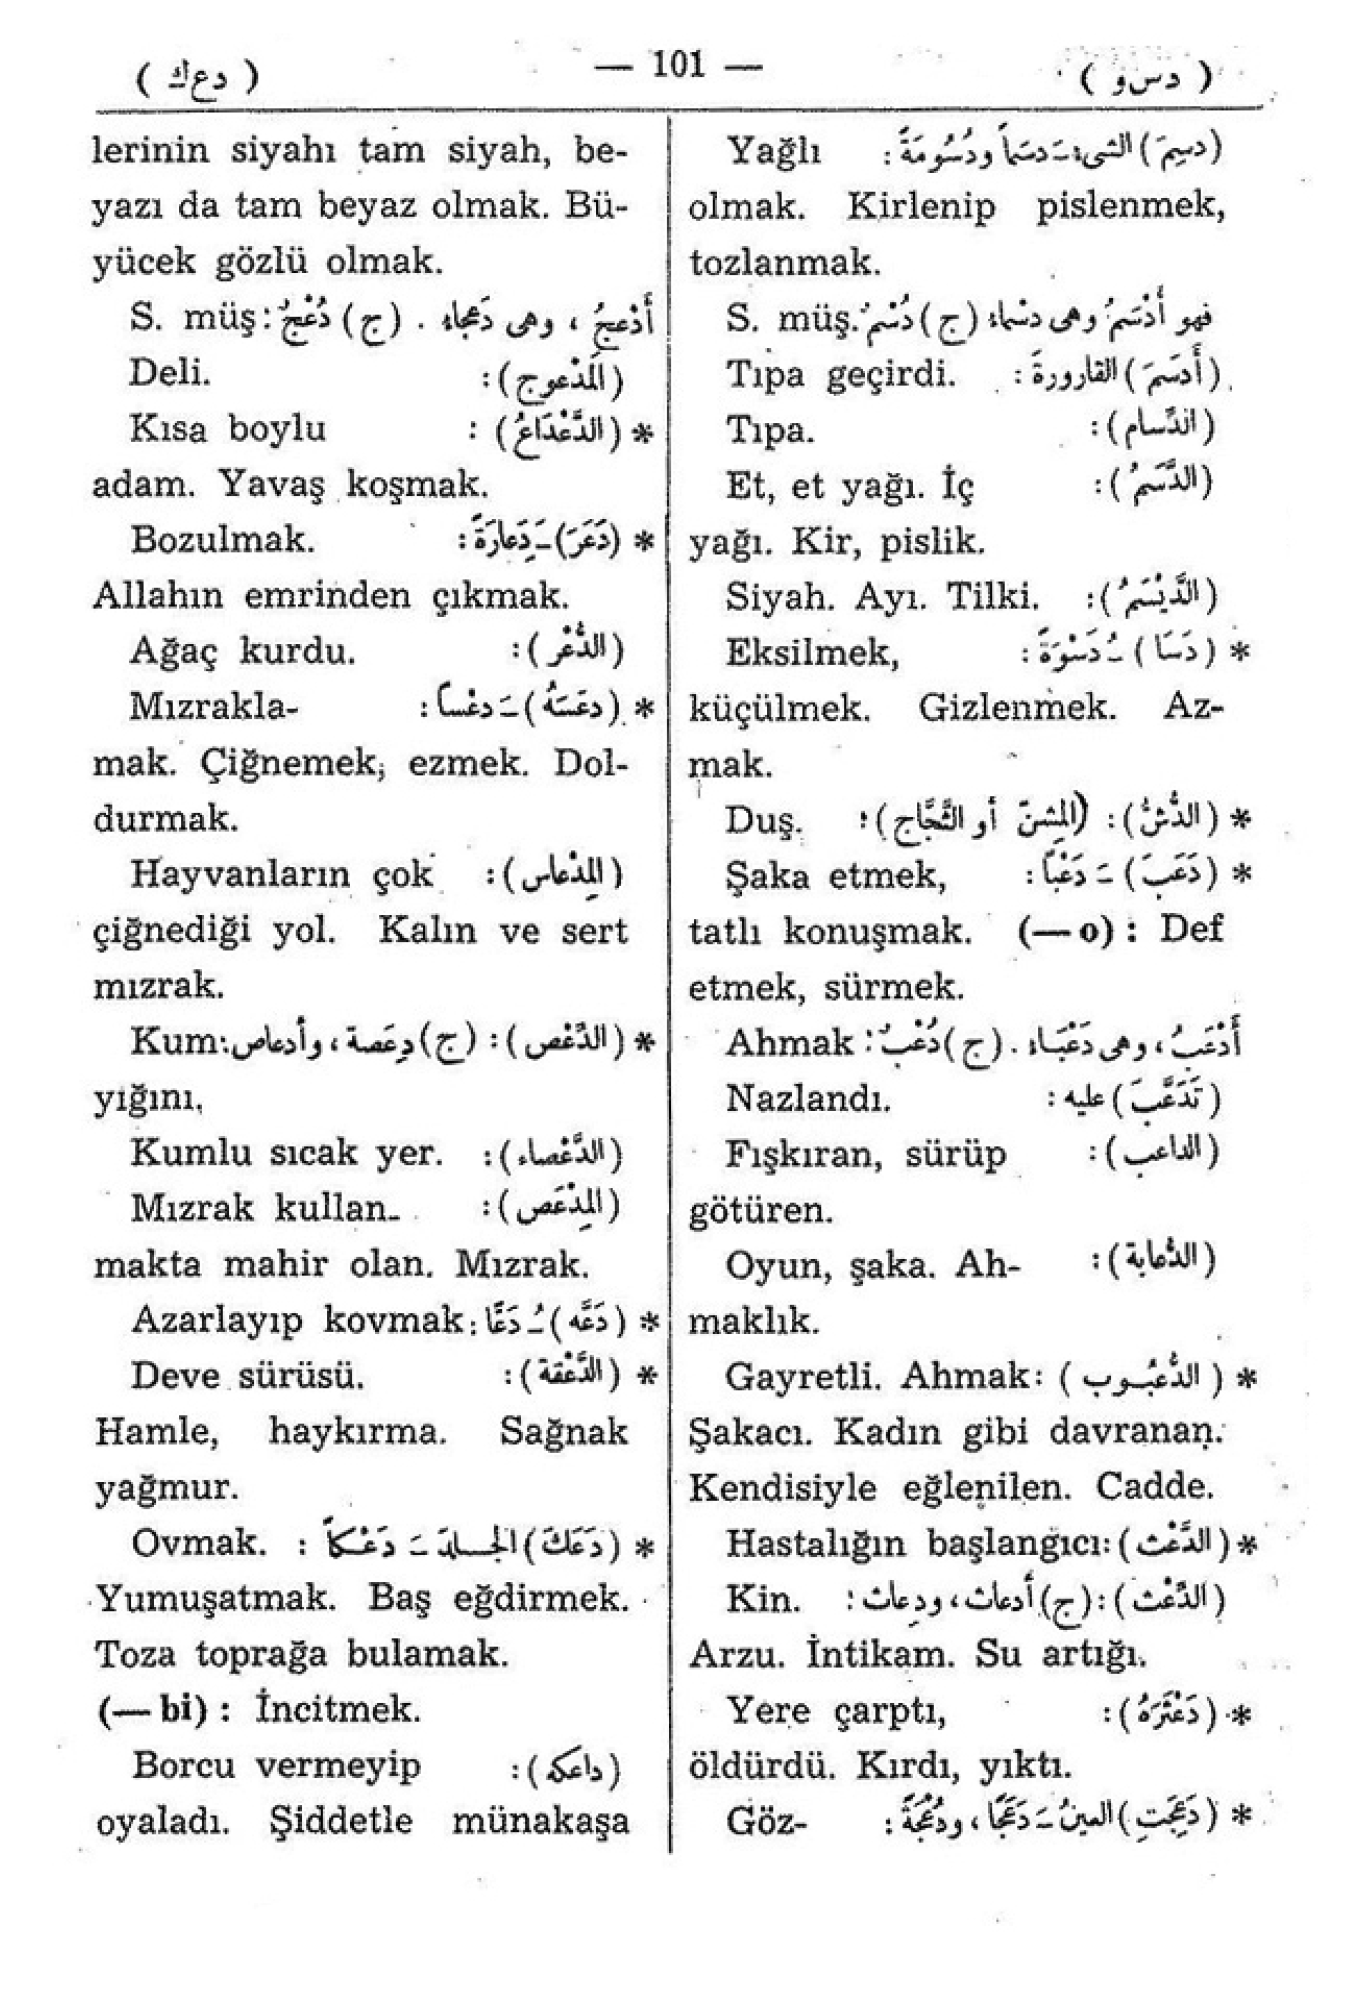 ( دسو )
— 101 —
( دعك )
(دسِمَ) الشىءُ ـَ دسَماً ودُسُومَةً : Yağlı
olmak. Kirlenip pislenmek,
tozlanmak.
فهو أدْسَمُ وهى دسْماء (ج) دُسْم. S. müş.
(أدسَمَ) القارورةَ : Tıpa geçirdi.
(الدِّسام): Tıpa.
(الدَّسَمُ): Et, et yağı. İç
yağı. Kir, pislik.
(الدَّيْسَمُ): Siyah. Ayı. Tilki.
* (دَسَا) ـُ دَسْوَةً : Eksilmek,
küçülmek. Gizlenmek. Az-
mak.
* (الدُّشُّ): (المِشَنّ أو الثَّجَّاج): Duş.
* (دَعَبَ) ـَ دَعْباً : Şaka etmek,
tatlı konuşmak. (— o) : Def
etmek, sürmek.
أَدْعَبُ، وهى دَعْبَاء. (ج) دُعْبٌ : Ahmak
(تَدَعَّبَ) عليه : Nazlandı.
(الداعب): Fışkıran, sürüp
götüren.
(الدُّعابة): Oyun, şaka. Ah-
maklık.
* (الدُّعْبُوب) : Gayretli. Ahmak
Şakacı. Kadın gibi davranan.
Kendisiyle eğlenilen. Cadde.
* (الدَّعْث): Hastalığın başlangıcı
(الدِّعْث): (ج) أدعاث، ودِعاث : Kin.
Arzu. İntikam. Su artığı.
* (دَعْثَرَهُ): Yere çarptı,
öldürdü. Kırdı, yıktı.
* (دَعِجَتِ) العينُ ـَ دَعَجًا، ودُعْجَةً : Göz-
lerinin siyahı tam siyah, be-
yazı da tam beyaz olmak. Bü-
yücek gözlü olmak.
أَدْعجُ ، وهى دَعْجاء . (ج) دُعْجٌ : S. müş
(المَدْعوج): Deli.
* (الدَّعْدَاعُ) : Kısa boylu
adam. Yavaş koşmak.
* (دَعَرَ) ـَ دَعارَةً : Bozulmak.
Allahın emrinden çıkmak.
(الدُّعْر): Ağaç kurdu.
* (دعَسَهُ) ـَ دعْساً : Mızrakla-
mak. Çiğnemek, ezmek. Dol-
durmak.
(المِدْعاس): Hayvanların çok
çiğnediği yol. Kalın ve sert
mızrak.
* (الدِّعْص): (ج) دِعَصة ، وأدعاص: Kum
yığını.
(الدَّعْصاء): Kumlu sıcak yer.
(المِدْعَص): Mızrak kullan-
makta mahir olan. Mızrak.
* (دَعَّه) ـُ دَعًّا : Azarlayıp kovmak
* (الدَّعْقة): Deve sürüsü.
Hamle, haykırma. Sağnak
yağmur.
* (دَعَكَ) الجـلدَ ـَ دَعْـكاً : Ovmak.
Yumuşatmak. Baş eğdirmek.
Toza toprağa bulamak.
(— bi) : İncitmek.
(داعكه): Borcu vermeyip
oyaladı. Şiddetle münakaşa